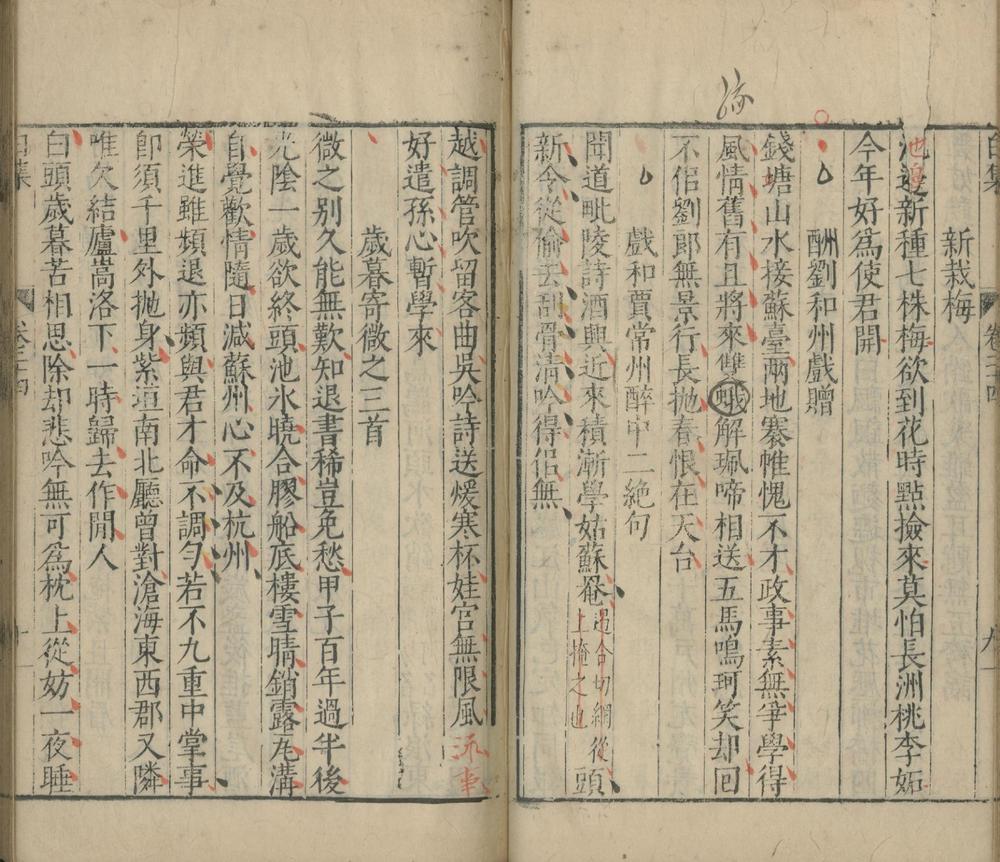 新栽梅
池邊新種七株梅欲到花時點撿來莫怕長洲桃李妬
今年好爲使君開
酬劉和州戲贈
錢塘山水接蘇臺兩地褰帷愧不才政事素無爭學得
風情舊有且將來雙蛾解珮啼相送五馬鳴珂笑却回
不侣劉郎無景行長抛春恨在天台
戲和賈常州醉中二絶句
聞道毗陵詩酒興近來積漸學姑蘇罨過合切網從上掩之也頭
新令從偷去刮骨清吟得侣無
越調管吹留客曲吳吟詩送煖寒杯娃宮無限風流事
好遣孫心暫學來
歲暮寄微之三首
微之别久能無歎知退書稀豈免愁甲子百年過半後
光陰一歲欲終頭池氷曉合膠船底樓雪晴銷露瓦溝
自覺歡情隨日減蘇州心不及杭州
榮進雖頻退亦頻與君才命不調勻若不九重中掌事
卽須千里外抛身紫垣南北廳曾對滄海東西郡又隣
唯欠結廬嵩洛下一時歸去作閒人
白頭歲暮苦相思除却悲吟無可爲枕上從妨一夜睡